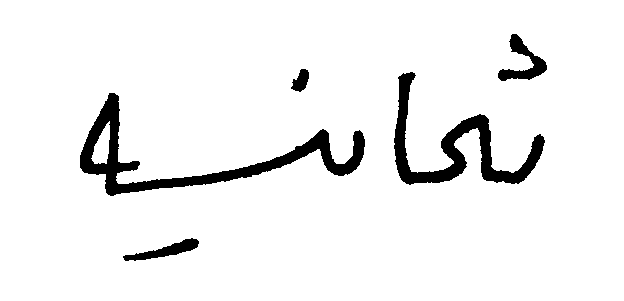 ثمانيه